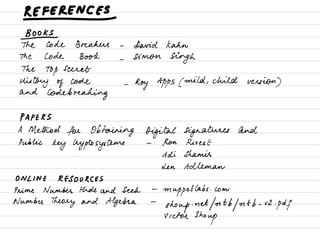 REFERENCES
BOOKS
The Code Breakers - David Kahn
The Code Book - Simon Singh
The Top Secret
History of Code - Roy Apps (mild, child version)
and Codebreaking
PAPERS
A Method for Obtaining Digital Signatures and
Public key Cryptosystems - Ron Rivest
Adi Shamir
Len Adleman
ONLINE RESOURCES
Prime Number Hide and Seek - muppetlabs.com
Number Theory and Algebra - shoup.net/ntb/ntb-v2.pdf
Victor Shoup